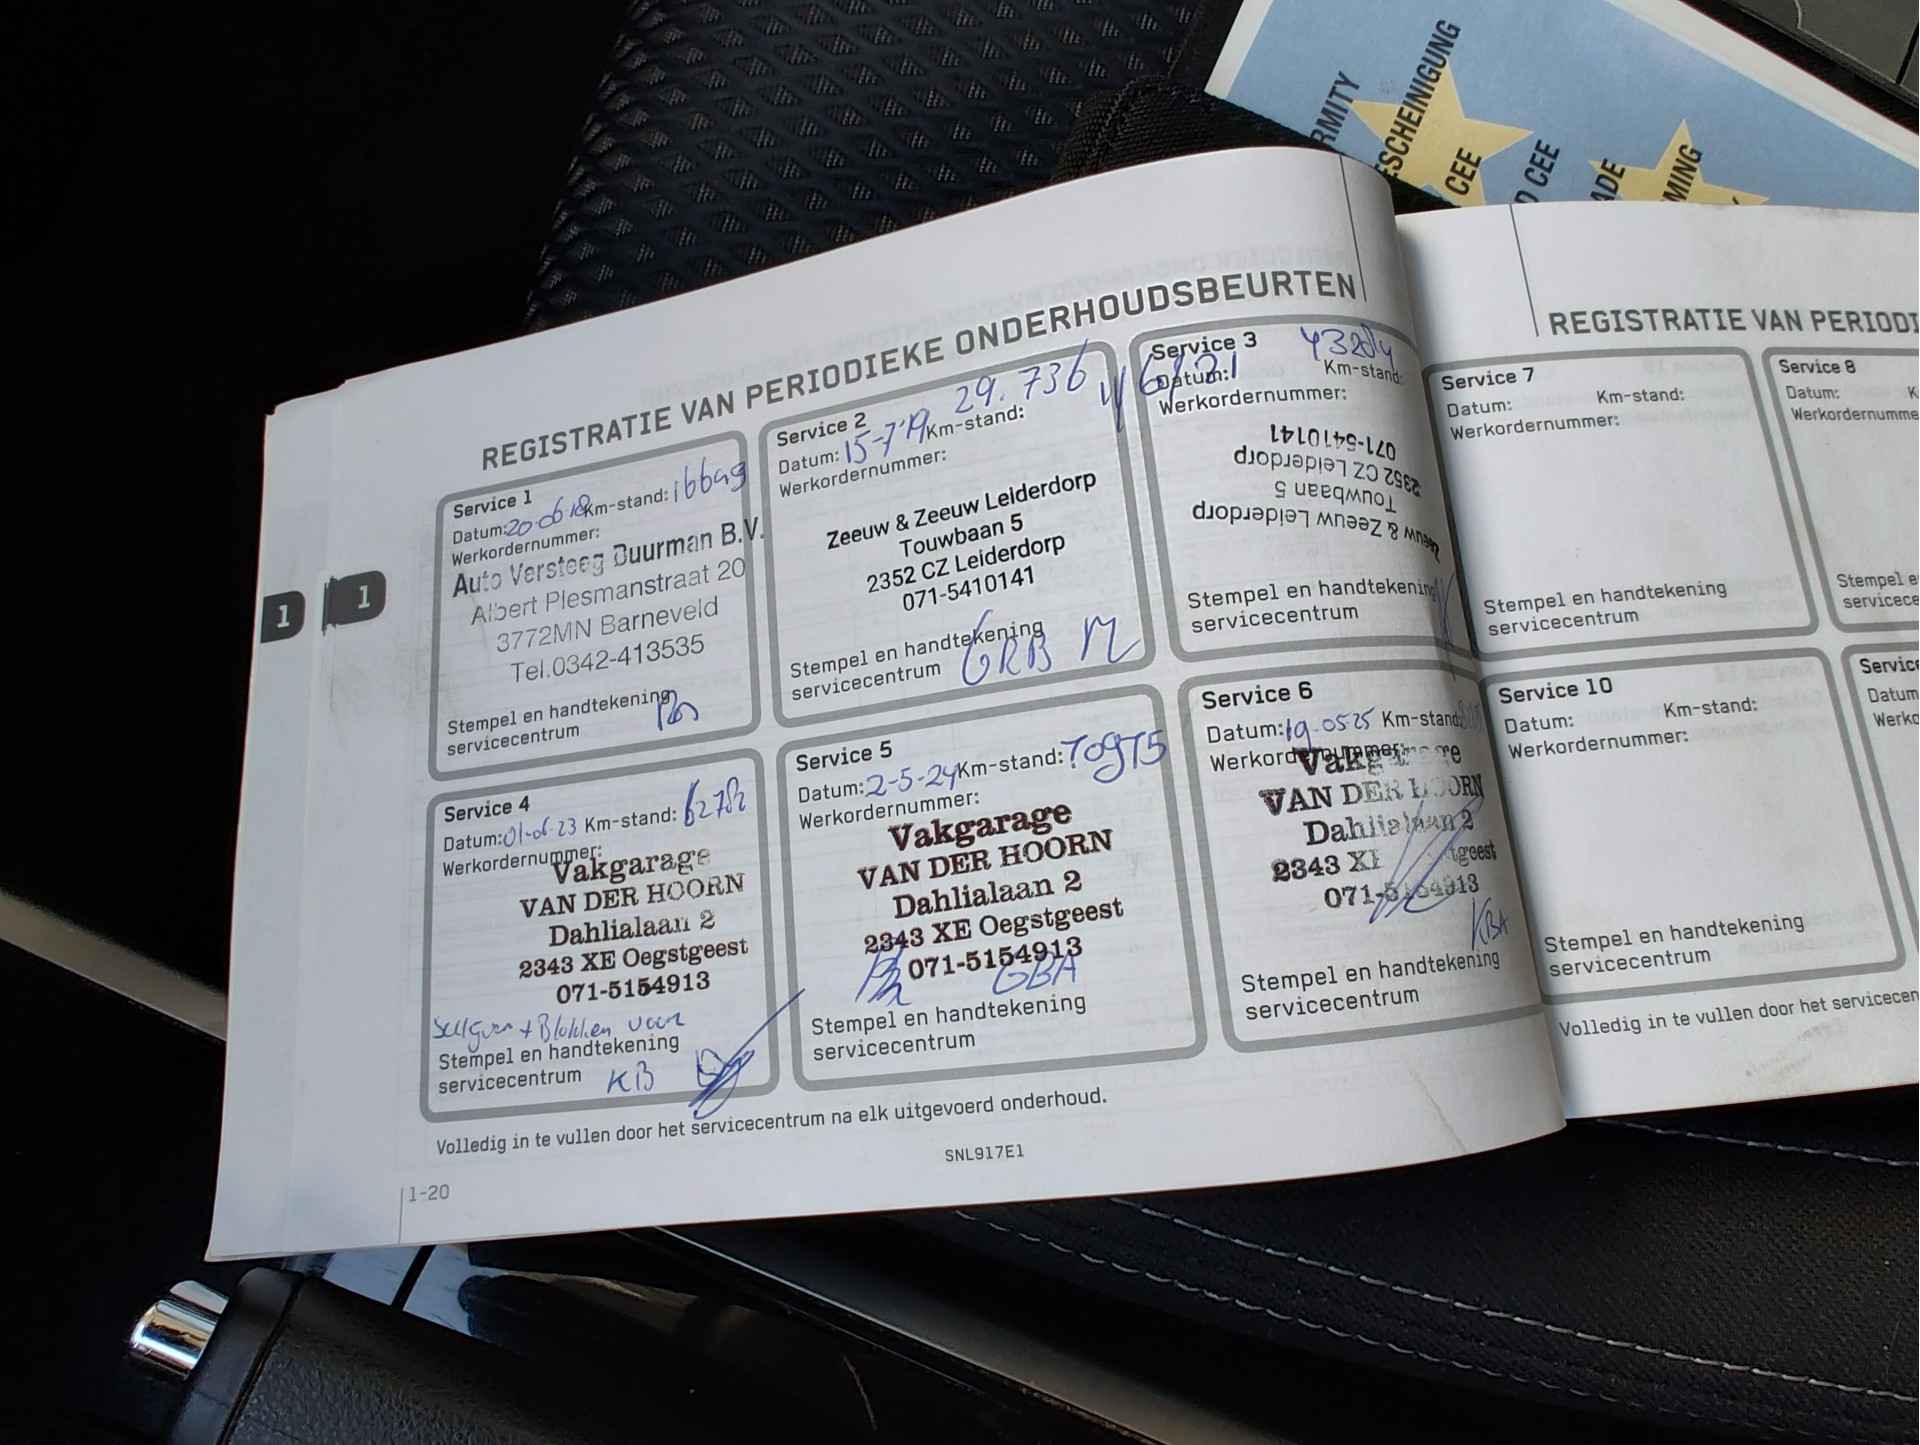 RMITY
ESCHEINIGUNG
CEE
D CEE
ADE
MING
REGISTRATIE VAN PERIODIEKE ONDERHOUDSBEURTEN
1
1
Service 1
Datum: 20-06-18 Km-stand: 16649
Werkordernummer:
Auto Versteeg Buurman B.V.
Albert Plesmanstraat 20
3772MN Barneveld
Tel.0342-413535
Stempel en handtekening
servicecentrum
Service 2
Datum: 15-7-'19 Km-stand: 29.736
Werkordernummer:
Zeeuw & Zeeuw Leiderdorp
Touwbaan 5
2352 CZ Leiderdorp
071-5410141
Stempel en handtekening
servicecentrum GRB
Service 3
Datum: Km-stand:
Werkordernummer:
Zeeuw & Zeeuw Leiderdorp
Touwbaan 5
2352 CZ Leiderdorp
071-5410141
Stempel en handtekening
servicecentrum
Service 4
Datum: 01-06-23 Km-stand:
Werkordernummer:
Vakgarage
VAN DER HOORN
Dahlialaan 2
2343 XE Oegstgeest
071-5154913
+ Blokken voor
Stempel en handtekening
servicecentrum KB
Service 5
Datum: 2-5-24 Km-stand: 70975
Werkordernummer:
Vakgarage
VAN DER HOORN
Dahlialaan 2
2343 XE Oegstgeest
071-5154913
GBA
Stempel en handtekening
servicecentrum
Service 6
Datum: 19-05-25 Km-stand:
Werkordernummer:
Vakgarage
VAN DER HOORN
Dahlialaan 2
2343 XE Oegstgeest
071-5154913
KBA
Stempel en handtekening
servicecentrum
Volledig in te vullen door het servicecentrum na elk uitgevoerd onderhoud.
SNL917E1
1-20
REGISTRATIE VAN PERIODI
Service 7
Datum: Km-stand:
Werkordernummer:
Stempel en handtekening
servicecentrum
Service 8
Datum: K
Werkordernumme
Stempel e
servicece
Service 10
Datum: Km-stand:
Werkordernummer:
Stempel en handtekening
servicecentrum
Service
Datum
Werko
Volledig in te vullen door het servicecen